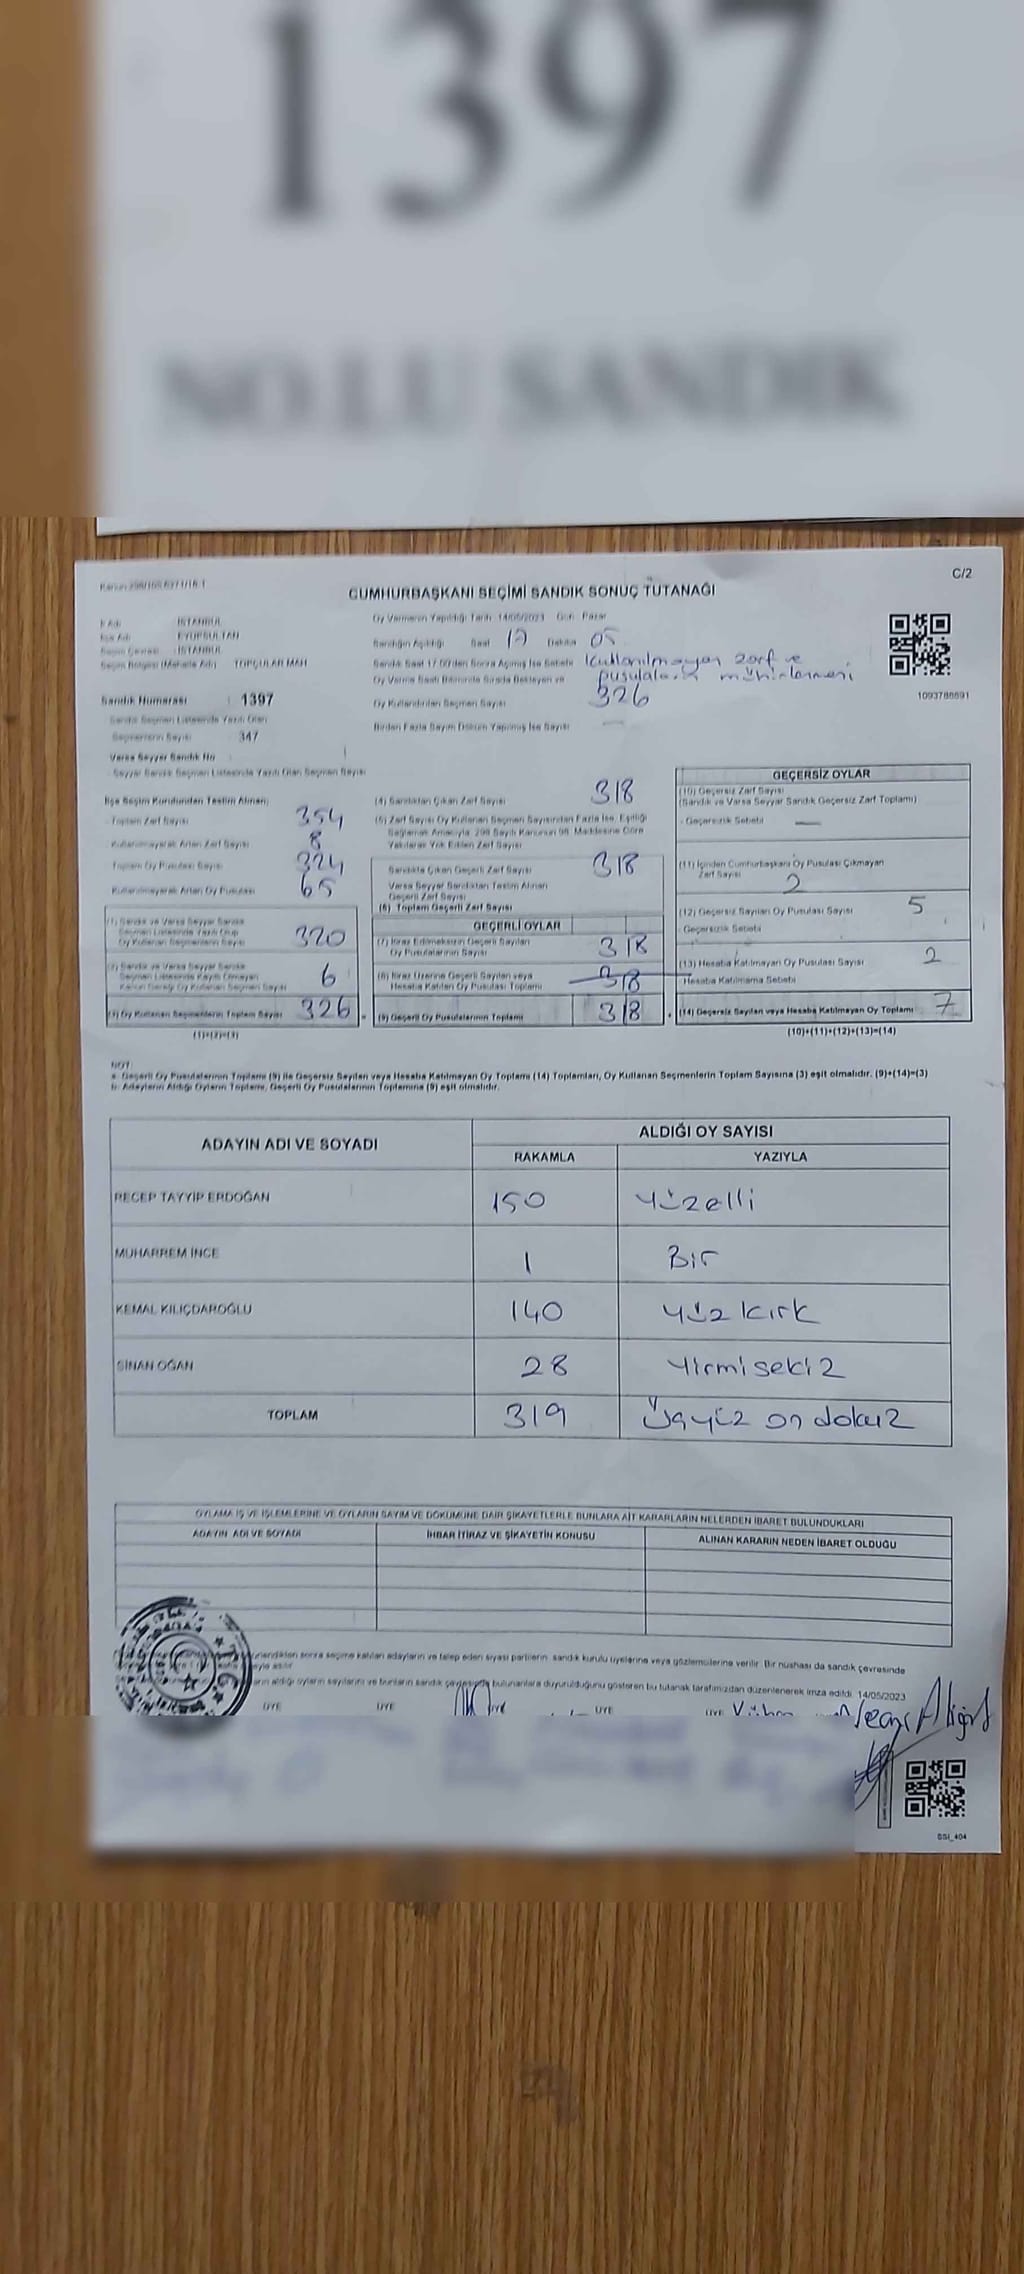 1397
NO.LU SANDIK
C/2
CUMHURBAŞKANI SEÇİMİ SANDIK SONUÇ TUTANAĞI
İl Adı : İSTANBUL
İlçe Adı : EYÜPSULTAN
Seçim Çevresi : İSTANBUL
Seçim Bölgesi (Mahalle Adı) TOPÇULAR MAH
Sandık Numarası : 1397
Sandık Seçmen Listesinde Yazılı Olan
Seçmenlerin Sayısı : 347
Varsa Seyyar Sandık No
Seyyar Sandık Seçmen Listesinde Yazılı Olan Seçmen Sayısı
Oy Vermenin Yapıldığı Tarih 14/05/2023 Gün Pazar
Sandığın Açıldığı Saat 17 Dakika 05
Sandık Saat 17.00'den Sonra Açılmış İse Sebebi kullanılmayan zarf ve
Oy Verme Saati Bitiminde Sırada Bekleyen ve pusulaların mühürlenmesi
Oy Kullandırılan Seçmen Sayısı 326
Birden Fazla Sayım Döküm Yapılmış İse Sayısı —
1093788691
İlçe Seçim Kurulundan Teslim Alınan;
- Toplam Zarf Sayısı 354
- Kullanılmayarak Artan Zarf Sayısı 8
- Toplam Oy Pusulası Sayısı 324
- Kullanılmayarak Artan Oy Pusulası 65
(1) Sandık ve Varsa Seyyar Sandık
Seçmen Listesinde Yazılı Olup
Oy Kullanan Seçmenlerin Sayısı 320
(2) Sandık ve Varsa Seyyar Sandık
Seçmen Listesinde Kayıtlı Olmayan
Kanun Gereği Oy Kullanan Seçmen Sayısı 6
(3) Oy Kullanan Seçmenlerin Toplam Sayısı 326
(1)+(2)=(3)
(4) Sandıktan Çıkan Zarf Sayısı 318
(5) Zarf Sayısı Oy Kullanan Seçmen Sayısından Fazla İse, Eşitliği
Sağlamak Amacıyla, 298 Sayılı Kanunun 98. Maddesine Göre
Yakılarak Yok Edilen Zarf Sayısı
Sandıkta Çıkan Geçerli Zarf Sayısı 318
Varsa Seyyar Sandıktan Teslim Alınan
Geçerli Zarf Sayısı
(6) Toplam Geçerli Zarf Sayısı
GEÇERLİ OYLAR
(7) İtiraz Edilmeksizin Geçerli Sayılan
Oy Pusulalarının Sayısı 318
(8) İtiraz Üzerine Geçerli Sayılan veya
Hesaba Katılan Oy Pusulası Toplamı 318
(9) Geçerli Oy Pusulalarının Toplamı 318
GEÇERSİZ OYLAR
(10) Geçersiz Zarf Sayısı
(Sandık ve Varsa Seyyar Sandık Geçersiz Zarf Toplamı)
- Geçersizlik Sebebi —
(11) İçinden Cumhurbaşkanı Oy Pusulası Çıkmayan
Zarf Sayısı 2
(12) Geçersiz Sayılan Oy Pusulası Sayısı 5
- Geçersizlik Sebebi
(13) Hesaba Katılmayan Oy Pusulası Sayısı 2
- Hesaba Katılmama Sebebi
(14) Geçersiz Sayılan veya Hesaba Katılmayan Oy Toplamı 7
(10)+(11)+(12)+(13)=(14)
NOT:
a- Geçerli Oy Pusulalarının Toplamı (9) ile Geçersiz Sayılan veya Hesaba Katılmayan Oy Toplamı (14) Toplamları, Oy Kullanan Seçmenlerin Toplam Sayısına (3) eşit olmalıdır. (9)+(14)=(3)
b- Adayların Aldığı Oyların Toplamı, Geçerli Oy Pusulalarının Toplamına (9) eşit olmalıdır.
ADAYIN ADI VE SOYADI
ALDIĞI OY SAYISI
RAKAMLA YAZIYLA
RECEP TAYYİP ERDOĞAN 150 yüzelli
MUHARREM İNCE 1 Bir
KEMAL KILIÇDAROĞLU 140 yüz kırk
SİNAN OĞAN 28 yirmi sekiz
TOPLAM 319 üçyüz on dokuz
OYLAMA İŞ VE İŞLEMLERİNE VE OYLARIN SAYIM VE DÖKÜMÜNE DAİR ŞİKAYETLERLE BUNLARA AİT KARARLARIN NELERDEN İBARET BULUNDUKLARI
ADAYIN ADI VE SOYADI İHBAR İTİRAZ VE ŞİKAYETİN KONUSU ALINAN KARARIN NEDEN İBARET OLDUĞU
sonra seçime katılan adayların ve talep eden siyasi partilerin sandık kurulu üyelerine veya gözlemcilerine verilir. Bir nüshası da sandık çevresinde
aldığı oyların sayılarını ve bunların sandık çevresinde bulunanlara duyurulduğunu gösteren bu tutanak tarafımızdan düzenlenerek imza edildi. 14/05/2023
ÜYE ÜYE ÜYE ÜYE ÜYE
T.C.
SSİ_404